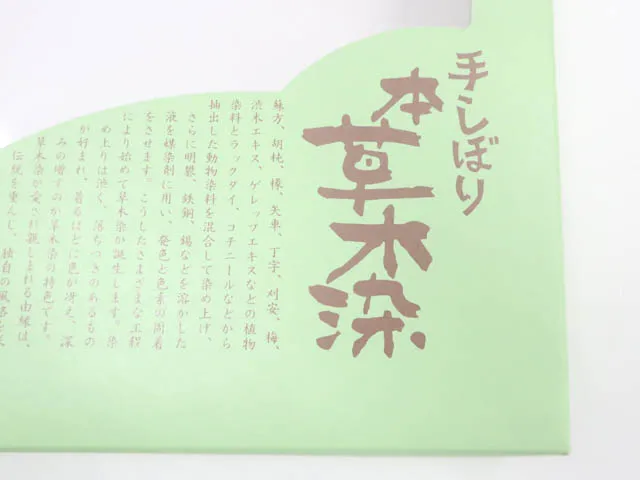 手しぼり
本草木染
蘇方、胡桃、橡、矢車、丁字、刈安、梅、
渋木エキス、ゲレップエキスなどの植物
染料とラックダイ、コチニールなどから
抽出した動物染料を混合して染め上げ、
さらに明礬、鉄銅、錫などを溶かした
液を媒染剤に用い、発色と色素の固着
をさせます。こうしたさまざまな工程
により始めて草木染が誕生します。染
め上りは渋く、落ちつきのあるもの
が好まれ、着るほどに色が冴え、深
みの増すのが草木染の特色です。
草木染が愛され親しまれる由縁は、
伝統を重んじ、独自の風格を